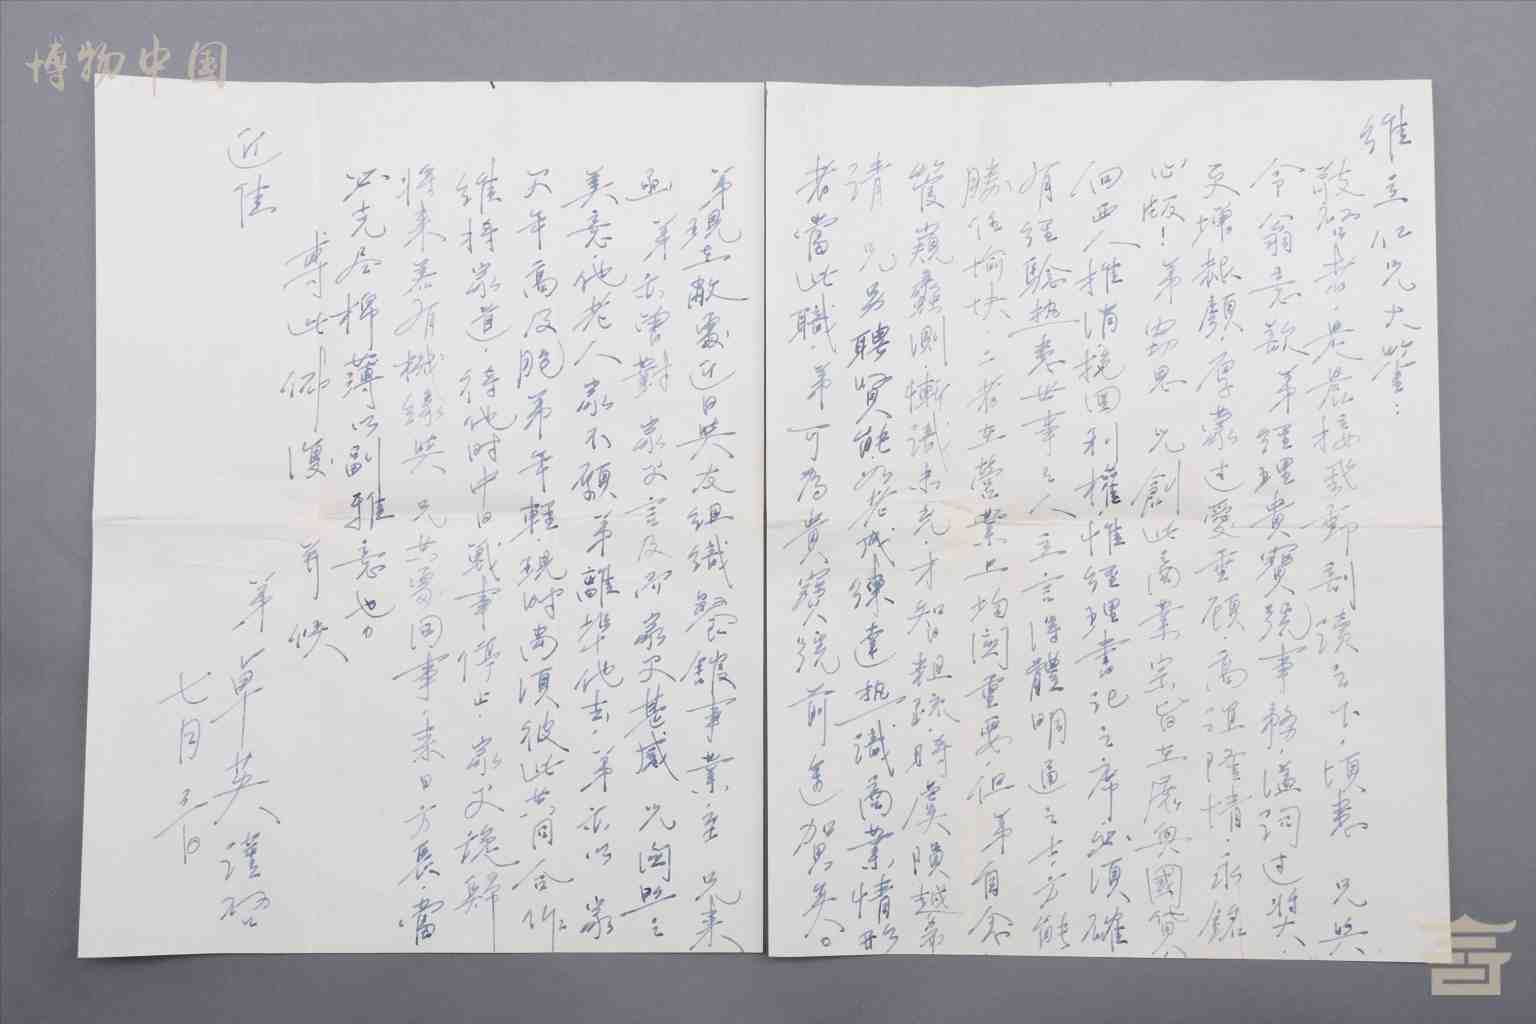 博物中国
維立仁兄大鑒：
敬啓者．是晨接到郵剖讀之下．頃悉 兄與
令翁意欲 弟經理貴寶號事務．溢詞过奖．
更增赧顏．厚蒙过愛重顾．高誼隆情．永銘
心版！弟 思 兄創此商業宗旨在展興國貨．
回西人推消挽回利權．惟經理書记之席．必須確
有經驗．熟悉世事之人．立言得體明通之士．方能
勝任愉快．二者在營業上均關重要．但弟自念
管窺蠡測．慚識未充．才智粗疏．時虞隕越．希
請 兄另聘贤能．老成練達．熟識商業情形
者當此職．弟可為貴寶號前途賀矣。
弟現在敝處近日與友組織餐館事業．至 兄来
函 弟亦曾對 家父言及．即家父甚感 兄關照之
美意．他老人家不願弟離準他去．弟亦以 家
父年高．及胞弟年輕．現時尚須彼此共同合作．
維持家道．待他時中日戰事停止．家父 歸．
将来若有機緣與 兄共商同事．来日方長．當
必克尽棉薄以副雅意也．
專此 即復 并候
近佳
弟 卓英謹啓
七月 日